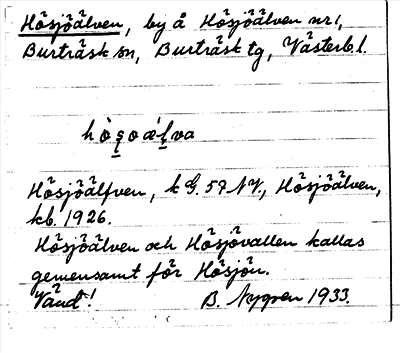 Hösjöälven, by å Hösjöälven nr 1,
Burträsk sn, Burträsk tg, Västerb. l.
Hösjöälfven, k G. 57 NV., Hösjöälven,
kb. 1926.
Hösjöälven och Hösjövallen kallas
gemensamt för Hösjön.
Vänd! B. Nygren 1933.